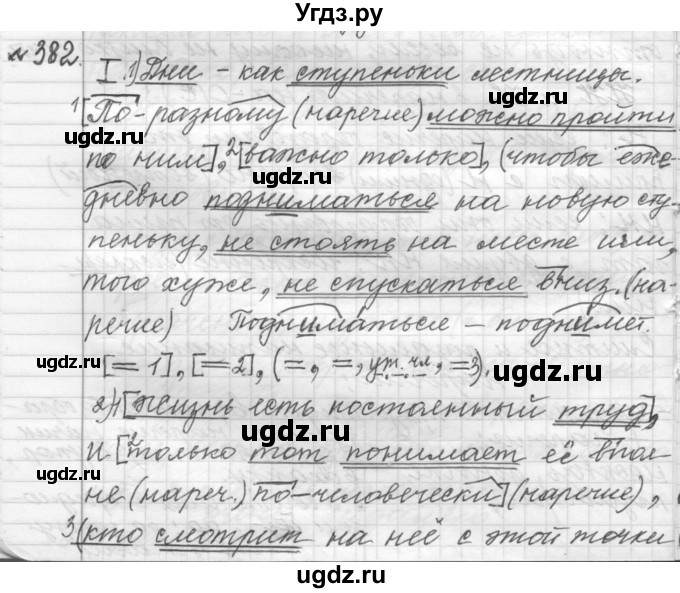 Угдз.ру
№382.
I. 1) Дни – как ступеньки лестницы.
1[По-разному (наречие) можно пройти
по ним], 2[важно только], (чтобы еже-
дневно подниматься на новую сту-
пеньку, не стоять на месте или,
того хуже, не спускаться вниз. (на-
речие) Подниматься – поднимет.
[= 1], [= 2], (=, =, ут. чл., = 3).
2) 1[Жизнь есть постоянный труд],
и [2только тот понимает её впол-
не (нареч.) по-человечески] (наречие),
3(кто смотрит на неё с этой точки
ugdz.ru
ugdz.ru
ugdz.ru
ugdz.ru
ugdz.ru
ugdz.ru
ugdz.ru
ugdz.ru
ugdz.ru
ugdz.ru
ugdz.ru
ugdz.ru
ugdz.ru